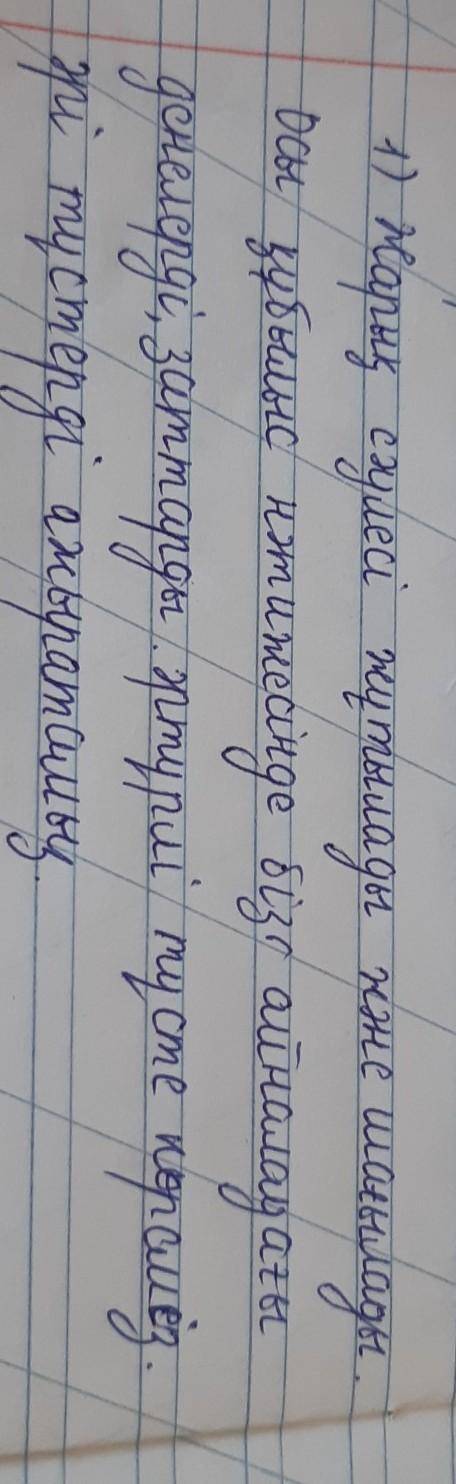 1) Жарық сәулесі жұтылады және шағылады.
Осы құбылыс нәтижесінде біз айналадағы
денелерді, заттарды әртүрлі түсте көреміз.
әрі түстерді ажыратамыз.